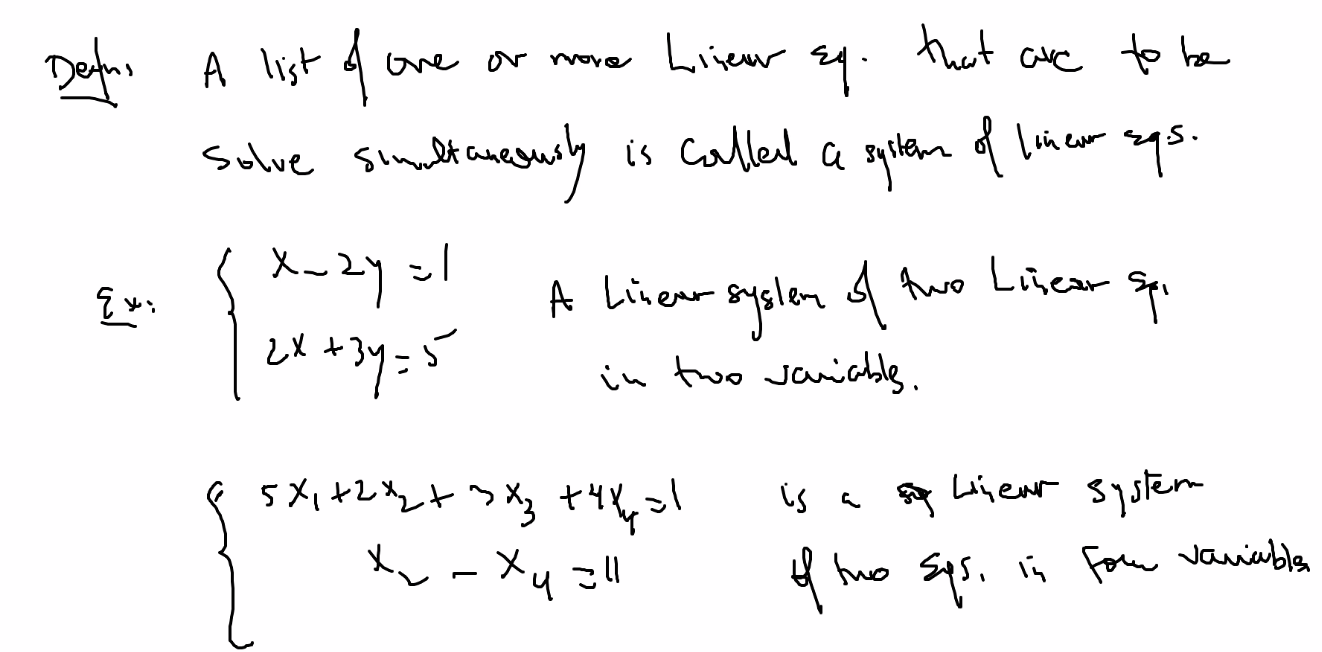 Defn: A list of one or more Linear Eq. that are to be
Solve simultaneously is called a system of linear Eqs.
Ex: { x - 2y = 1 A Linear system of two Linear Eq.
2x + 3y = 5 in two variables.
{ 5x₁ + 2x₂ + 3x₃ + 4x₄ = 1 is a Linear system
x₂ - x₄ = 11 of two Eqs. in Four variables